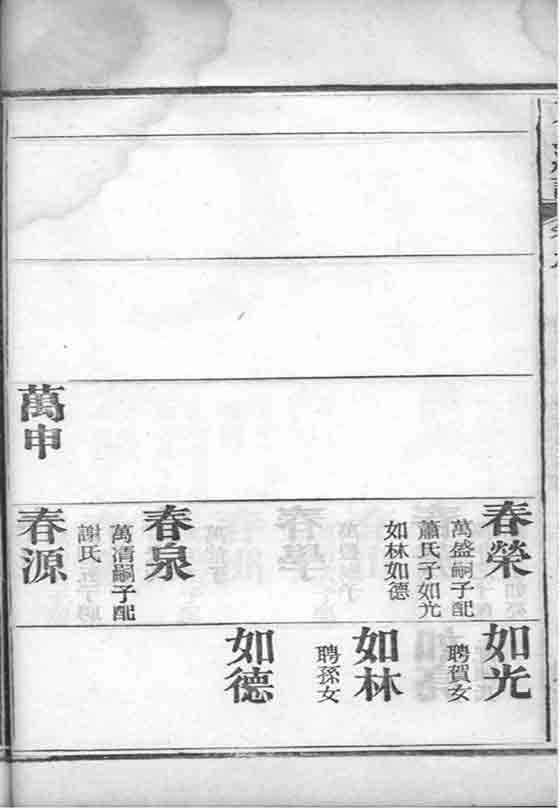 萬申
春榮
萬盛嗣子配
蕭氏子如光
如林如德
春泉
萬清嗣子配
謝氏
春源
如光
聘賀女
如林
聘孫女
如德